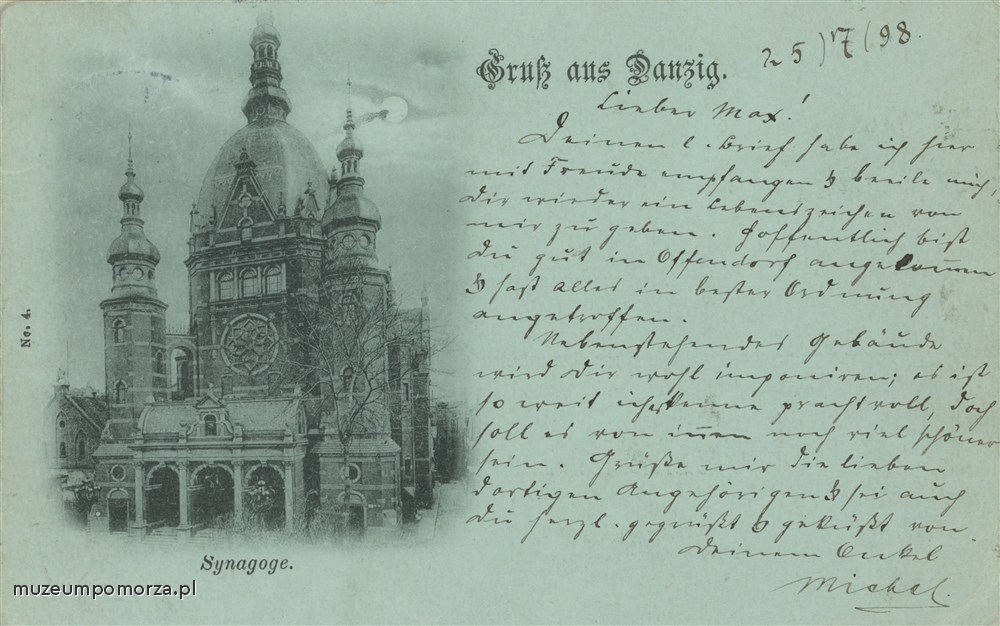 Gruß aus Danzig.
25/7/98.
Lieber Max!
Deinen l. Brief habe ich hier
mit Freude empfangen & beeile mich,
Dir wieder ein Lebenszeichen von
mir zu geben. Hoffentlich bist
Du gut in Offendorf angekommen
& hast Alles in bester Ordnung
angetroffen.
Nebenstehendes Gebäude
wird Dir wohl imponiren; es ist
so weit ich's kenne prachtvoll, doch
soll es von innen noch viel schöner
sein. Grüße mir die lieben
dortigen Angehörigen & sei auch
Du herzl. gegrüßt & geküßt von
Deinem Onkel
Michel.
No. 4.
Synagoge.
muzeumpomorza.pl